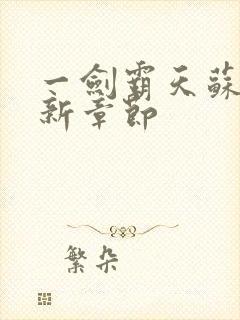 一劍霸天蘇
新章節
繁朵